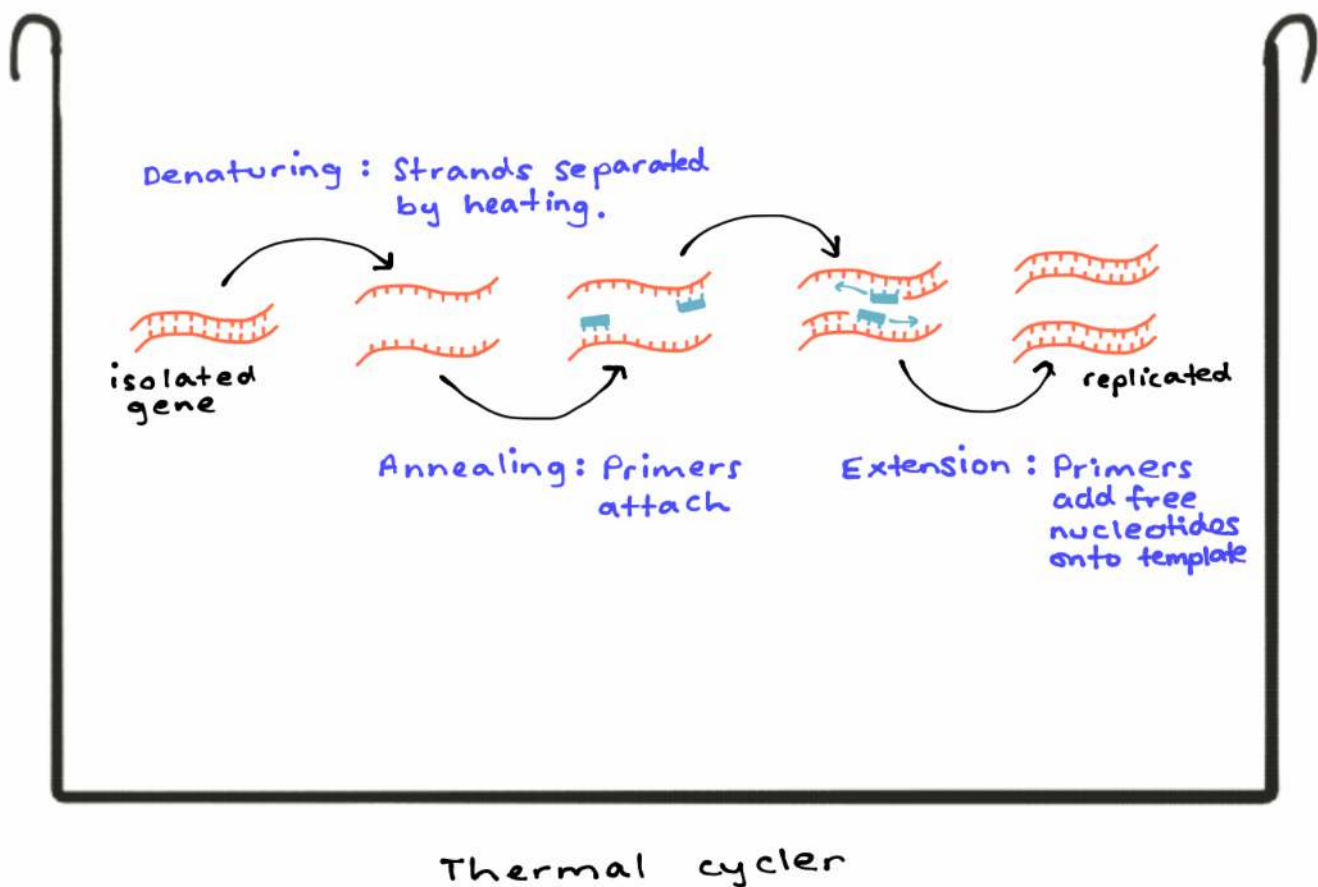 Denaturing : Strands separated
by heating.
isolated
gene
replicated
Annealing : Primers
attach
Extension : Primers
add free
nucleotides
onto template
Thermal cycler